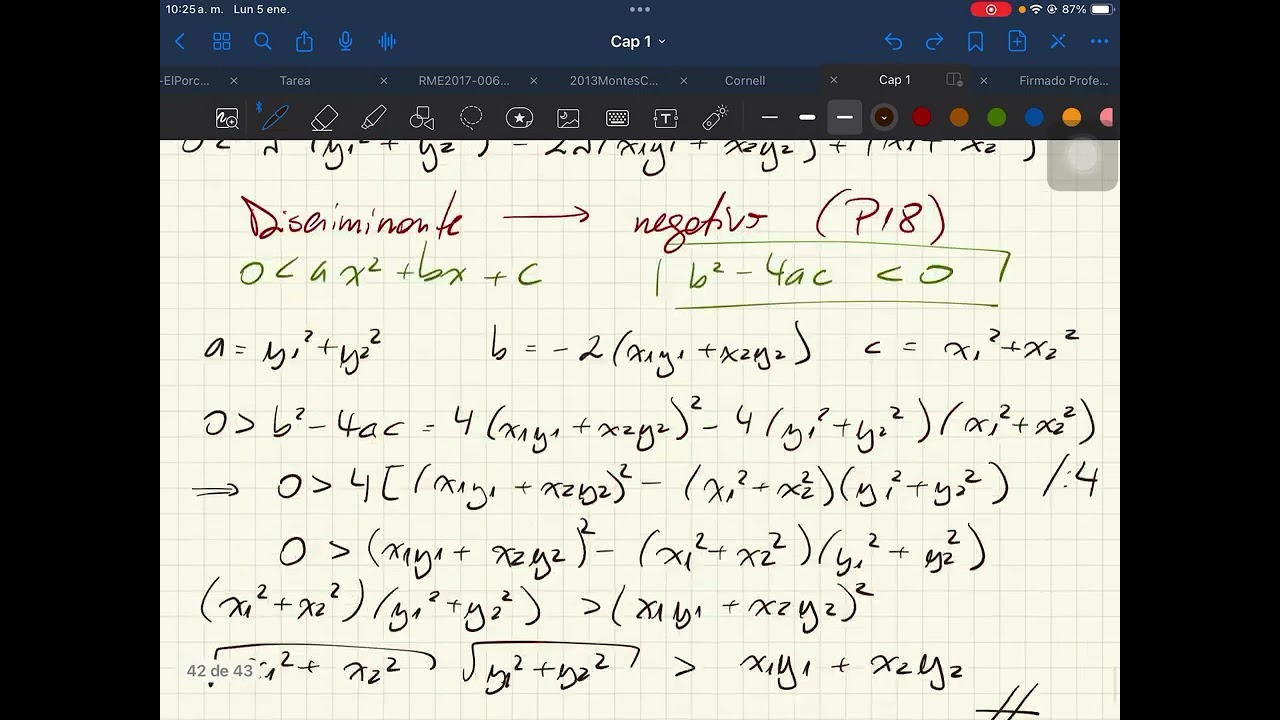 10:25 a. m. Lun 5 ene.
87%
Cap 1
-ElPorc... Tarea RME2017-006... 2013MontesC... Cornell Cap 1 Firmado Profe...
0 < λ²(y₁² + y₂²) - 2λ(x₁y₁ + x₂y₂) + (x₁² + x₂²)
Discriminante → negativo (P18)
0 < ax² + bx + c b² - 4ac < 0
a = y₁² + y₂² b = -2(x₁y₁ + x₂y₂) c = x₁² + x₂²
0 > b² - 4ac = 4(x₁y₁ + x₂y₂)² - 4(y₁² + y₂²)(x₁² + x₂²)
⇒ 0 > 4[(x₁y₁ + x₂y₂)² - (x₁² + x₂²)(y₁² + y₂²) /:4
0 > (x₁y₁ + x₂y₂)² - (x₁² + x₂²)(y₁² + y₂²)
(x₁² + x₂²)(y₁² + y₂²) > (x₁y₁ + x₂y₂)²
√x₁² + x₂² √y₁² + y₂² > x₁y₁ + x₂y₂
42 de 43
//